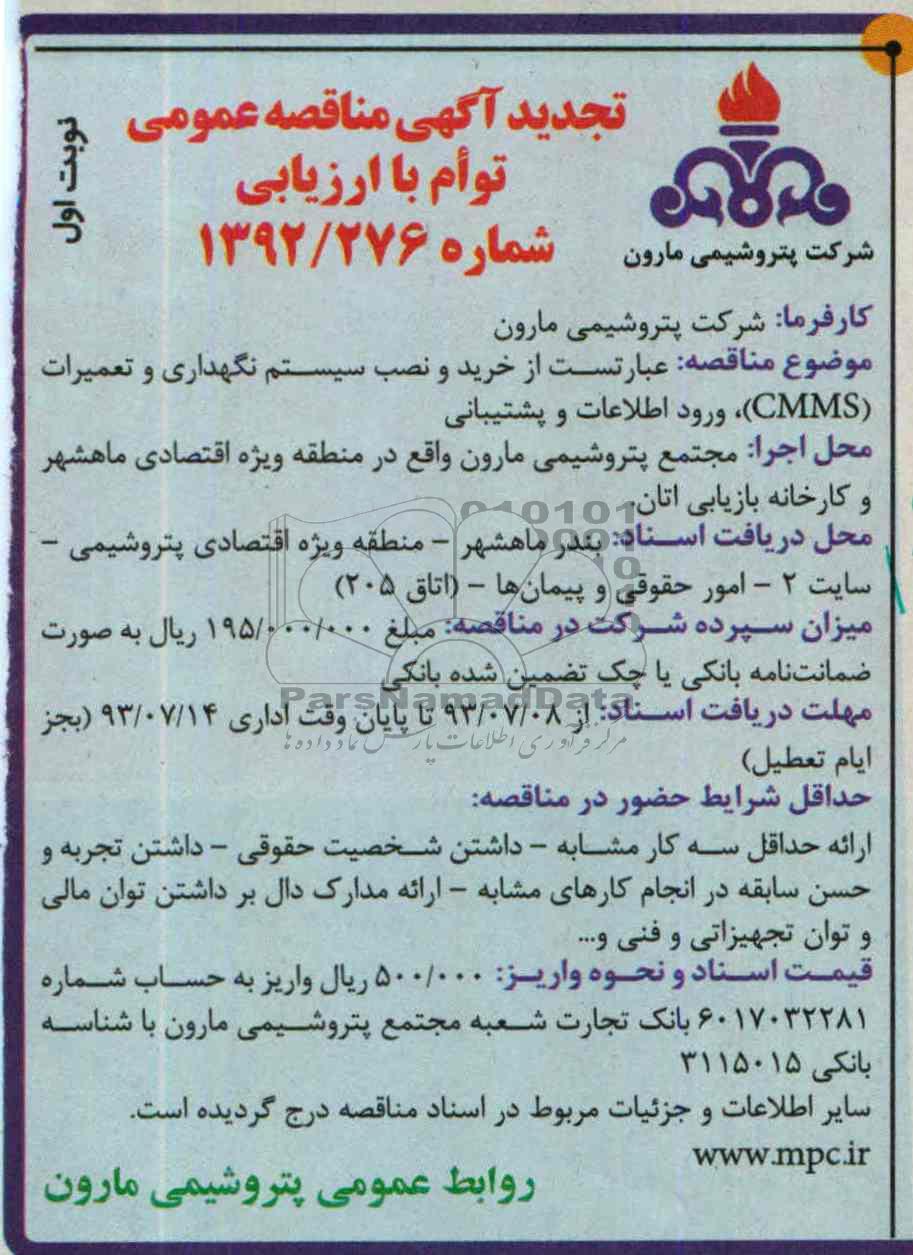 نوبت اول
تجدید آگهی مناقصه عمومی
توأم با ارزیابی
شماره ۱۳۹۲/۲۷۶
شرکت پتروشیمی مارون
کارفرما: شرکت پتروشیمی مارون
موضوع مناقصه: عبارتست از خرید و نصب سیستم نگهداری و تعمیرات
(CMMS)، ورود اطلاعات و پشتیبانی
محل اجرا: مجتمع پتروشیمی مارون واقع در منطقه ویژه اقتصادی ماهشهر
و کارخانه بازیابی اتان.
محل دریافت اسناد: بندر ماهشهر – منطقه ویژه اقتصادی پتروشیمی –
سایت ۲ – امور حقوقی و پیمان‌ها – (اتاق ۲۰۵)
میزان سپرده شرکت در مناقصه: مبلغ ۱۹۵/۰۰۰/۰۰۰ ریال به صورت
ضمانت‌نامه بانکی یا چک تضمین شده بانکی
ParsNamadData
مهلت دریافت اسناد: از ۹۳/۰۷/۰۸ تا پایان وقت اداری ۹۳/۰۷/۱۴ (بجز
مرکز فرآوری اطلاعات پارس نماد داده ها
ایام تعطیل)
حداقل شرایط حضور در مناقصه:
ارائه حداقل سه کار مشابه – داشتن شخصیت حقوقی – داشتن تجربه و
حسن سابقه در انجام کارهای مشابه – ارائه مدارک دال بر داشتن توان مالی
و توان تجهیزاتی و فنی و...
قیمت اسناد و نحوه واریز: ۵۰۰/۰۰۰ ریال واریز به حساب شماره
۶۰۱۷۰۳۲۲۸۱ بانک تجارت شعبه مجتمع پتروشیمی مارون با شناسه
بانکی ۳۱۱۵۰۱۵
سایر اطلاعات و جزئیات مربوط در اسناد مناقصه درج گردیده است.
www.mpc.ir
روابط عمومی پتروشیمی مارون